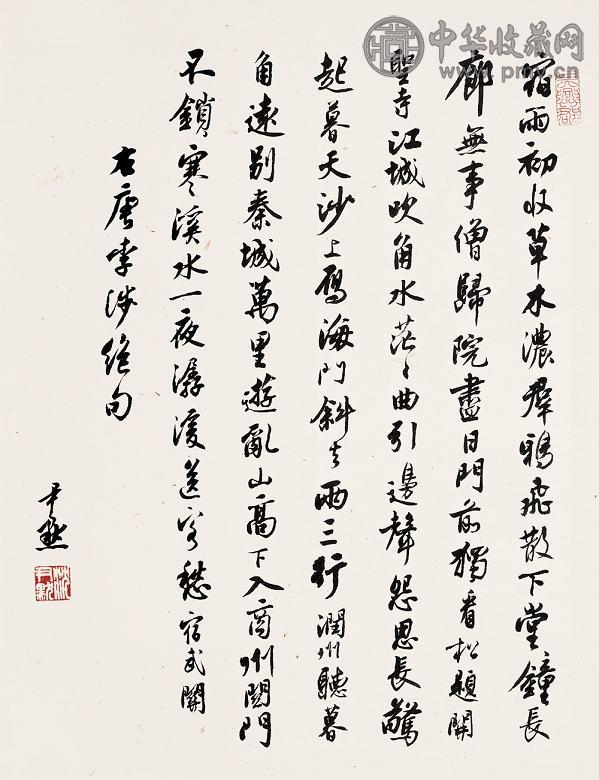 宿雨初收草木濃羣鴉飛散下堂鐘長
廊無事僧歸院盡日門前獨看松題開
聖寺江城吹角水茫〻曲引邊聲怨思長驚
起暮天沙上雁海門斜去兩三行潤州聽暮
角遠別秦城萬里遊亂山高下入商州關門
不鎖寒溪水一夜潺湲送客愁宿武關
右唐李涉絕句
尹默
沈尹默
中华收藏网